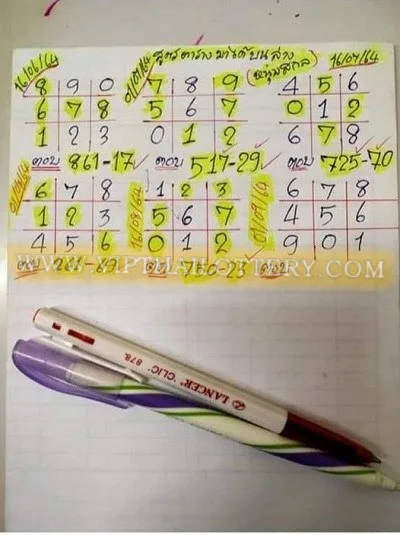 สูตรตารางมาเดียบนล่าง
16/06/64 01/07/64 (หนุ่มสุกล) 16/07/64
8 9 0 7 8 9 4 5 6
6 7 8 5 6 7 0 1 2
1 2 3 0 1 2 6 7 8
ตอบ 861-17 ตอบ 517-29 ตอบ 725-70
16/08/64 01/09/64
6 7 8 1 2 3 6 7 8
1 2 3 5 6 7 4 5 6
4 5 6 0 1 2 9 0 1
ตอบ ตอบ ตอบ
WWW.VIPTHAILOTTERY.COM
LANCER CLIC 878.